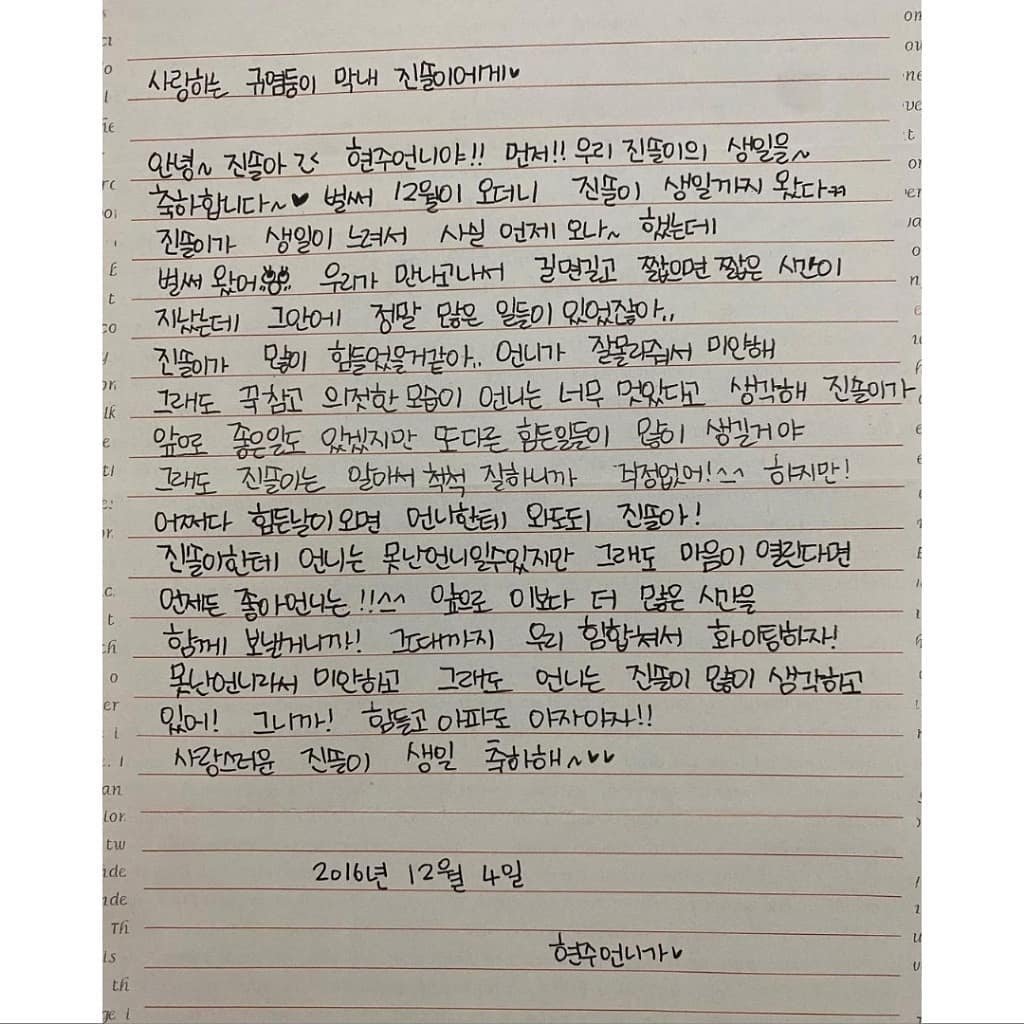 사랑하는 귀염둥이 막내 진쏠이에게♥
안녕~ 진쏠아 ㄹ< 현주언니야!! 먼저!! 우리 진쏠이의 생일을~
축하합니다~♥ 벌써 12월이 오더니 진쏠이 생일까지 왔다ㅋㅋ
진쏠이가 생일이 느려서 사실 언제 오나~ 했는데
벌써 왔어 우리가 만나고나서 길면길고 짧으면 짧은 시간이
지났는데 그안에 정말 많은 일들이 있었잖아..
진쏠이가 많이 힘들었을거같아.. 언니가 잘몰라줘서 미안해
그래도 꾹참고 의젓한 모습이 언니는 너무 멋있다고 생각해 진쏠이가
앞으로 좋은일도 있겠지만 또다른 힘든일들이 많이 생길거야
그래도 진쏠이는 알아서 척척 잘하니까 걱정없어!^^ 하지만!
어쩌다 힘든날이오면 언니한테 와도되 진쏠아!
진쏠이한테 언니는 못난언니일수있지만 그래도 마음이 열린다면
언제든 좋아언니는!!^^ 앞으로 이보다 더 많은 시간을
함께 보낼거니까! 그때까지 우리 힘합쳐서 화이팅하자!
못난언니라서 미안하고 그래도 언니는 진쏠이 많이 생각하고
있어! 그니까! 힘들고 아파도 아자아자!!
사랑스러운 진쏠이 생일 축하해~♥♥
2016년 12월 4일
현주언니가♥